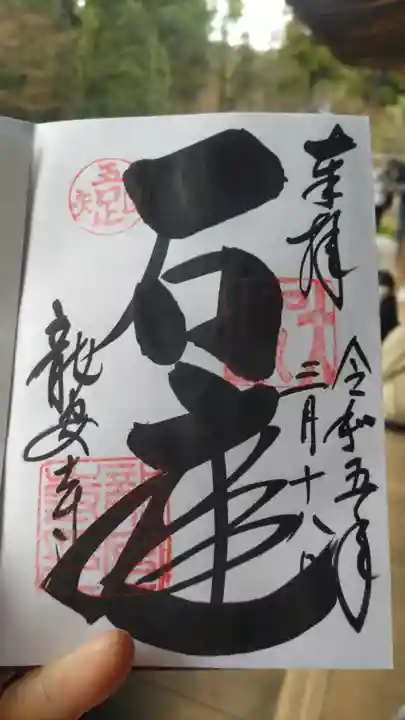 奉拝
令和五年
三月十八日
石庭
吾唯足知
龍安寺